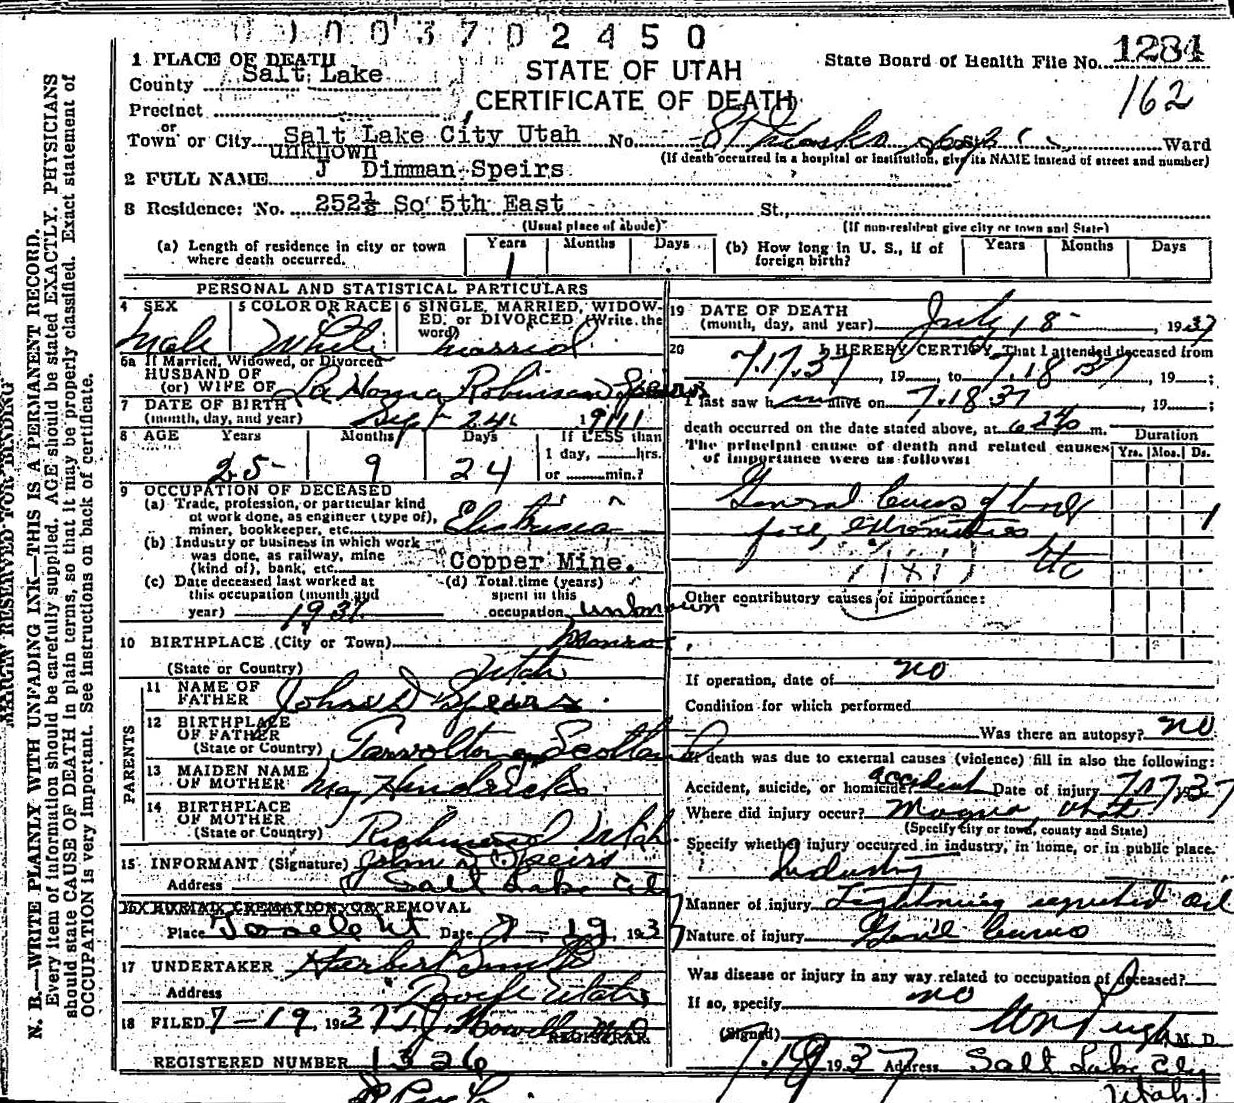 0 1 0 0 3 7 0 2 4 5 0
1 PLACE OF DEATH
County Salt Lake
STATE OF UTAH
CERTIFICATE OF DEATH
State Board of Health File No. 1284
162
Precinct
or
Town or City Salt Lake City Utah No. St Ward
unknown
(If death occurred in a hospital or institution, give its NAME instead of street and number)
2 FULL NAME J Dimman Speirs
3 Residence: No. 252½ So 5th East St.,
(Usual place of abode) (If non-resident give city or town and State)
(a) Length of residence in city or town where death occurred. Years 1 Months Days
(b) How long in U. S., if of foreign birth? Years Months Days
PERSONAL AND STATISTICAL PARTICULARS
4 SEX Male
5 COLOR OR RACE White
6 SINGLE, MARRIED, WIDOWED, or DIVORCED (Write the word) married
6a If Married, Widowed, or Divorced
HUSBAND OF
(or) WIFE OF La Noma Robinson Speirs
7 DATE OF BIRTH
(month, day, and year) Sept 24 1911
8 AGE Years 25 Months 9 Days 24 If LESS than 1 day, hrs. or min.?
9 OCCUPATION OF DECEASED
(a) Trade, profession, or particular kind of work done, as engineer (type of), miner, bookkeeper, etc. Electrician
(b) Industry or business in which work was done, as railway, mine (kind of), bank, etc. Copper Mine.
(c) Date deceased last worked at this occupation (month and year) 1937
(d) Total time (years) spent in this occupation unknown
10 BIRTHPLACE (City or Town) Monroe
(State or Country) Utah
PARENTS
11 NAME OF FATHER John D Speirs
12 BIRTHPLACE OF FATHER
(State or Country) Scotland
13 MAIDEN NAME OF MOTHER May Hendricks
14 BIRTHPLACE OF MOTHER
(State or Country) Richmond Utah
15 INFORMANT (Signature) John D Speirs
Address Salt Lake City
16 BURIAL CREMATION OR REMOVAL
Place Tooele Ut Date 7-19, 1937
17 UNDERTAKER Herbert Smith
Address Tooele Utah
18 FILED 7-19 1937 T. J. Howells M.D.
REGISTRAR.
REGISTERED NUMBER 1326
19 DATE OF DEATH
(month, day, and year) July 18 , 1937
20 I HEREBY CERTIFY, That I attended deceased from
7.17.37, 19 , to 7.18 37, 19 ;
I last saw him alive on 7.18.37, 19 ;
death occurred on the date stated above, at m.
The principal cause of death and related causes of importance were as follows:
Duration
Yrs. Mos. Ds.
General burns of body
face, extremities 1
Etc
Other contributory causes of importance:
If operation, date of no
Condition for which performed
Was there an autopsy? no
If death was due to external causes (violence) fill in also the following:
Accident, suicide, or homicide? accident Date of injury 7.17.1937
Where did injury occur? Magna, Utah
(Specify city or town, county and State)
Specify whether injury occurred in industry, in home, or in public place.
Industry
Manner of injury Lightning ignited oil
Nature of injury Gen'l burns
Was disease or injury in any way related to occupation of deceased?
If so, specify no
(Signed) M. D.
7.19 1937 Address Salt Lake City
Utah.
MARGIN RESERVED FOR BINDING
N. B.—WRITE PLAINLY WITH UNFADING INK—THIS IS A PERMANENT RECORD.
Every item of information should be carefully supplied. AGE should be stated EXACTLY. PHYSICIANS
should state CAUSE OF DEATH in plain terms, so that it may be properly classified. Exact statement of
OCCUPATION is very important. See instructions on back of certificate.